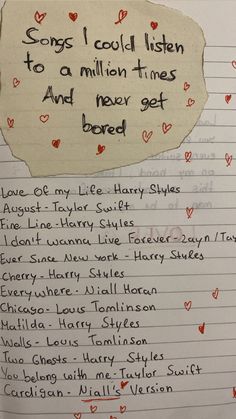 Songs I could listen
to a million times
And never get
bored
Love Of my Life - Harry Styles
August - Taylor Swift
Fine Line - Harry Styles
I don't wanna Live Forever - Zayn / Tay
Ever Since New york - Harry Styles
Cherry - Harry Styles
Everywhere - Niall Horan
Chicago - Louis Tomlinson
Matilda - Harry Styles
Walls - Louis Tomlinson
Two Ghosts - Harry Styles
You belong with me - Taylor Swift
Cardigan - Niall's Version